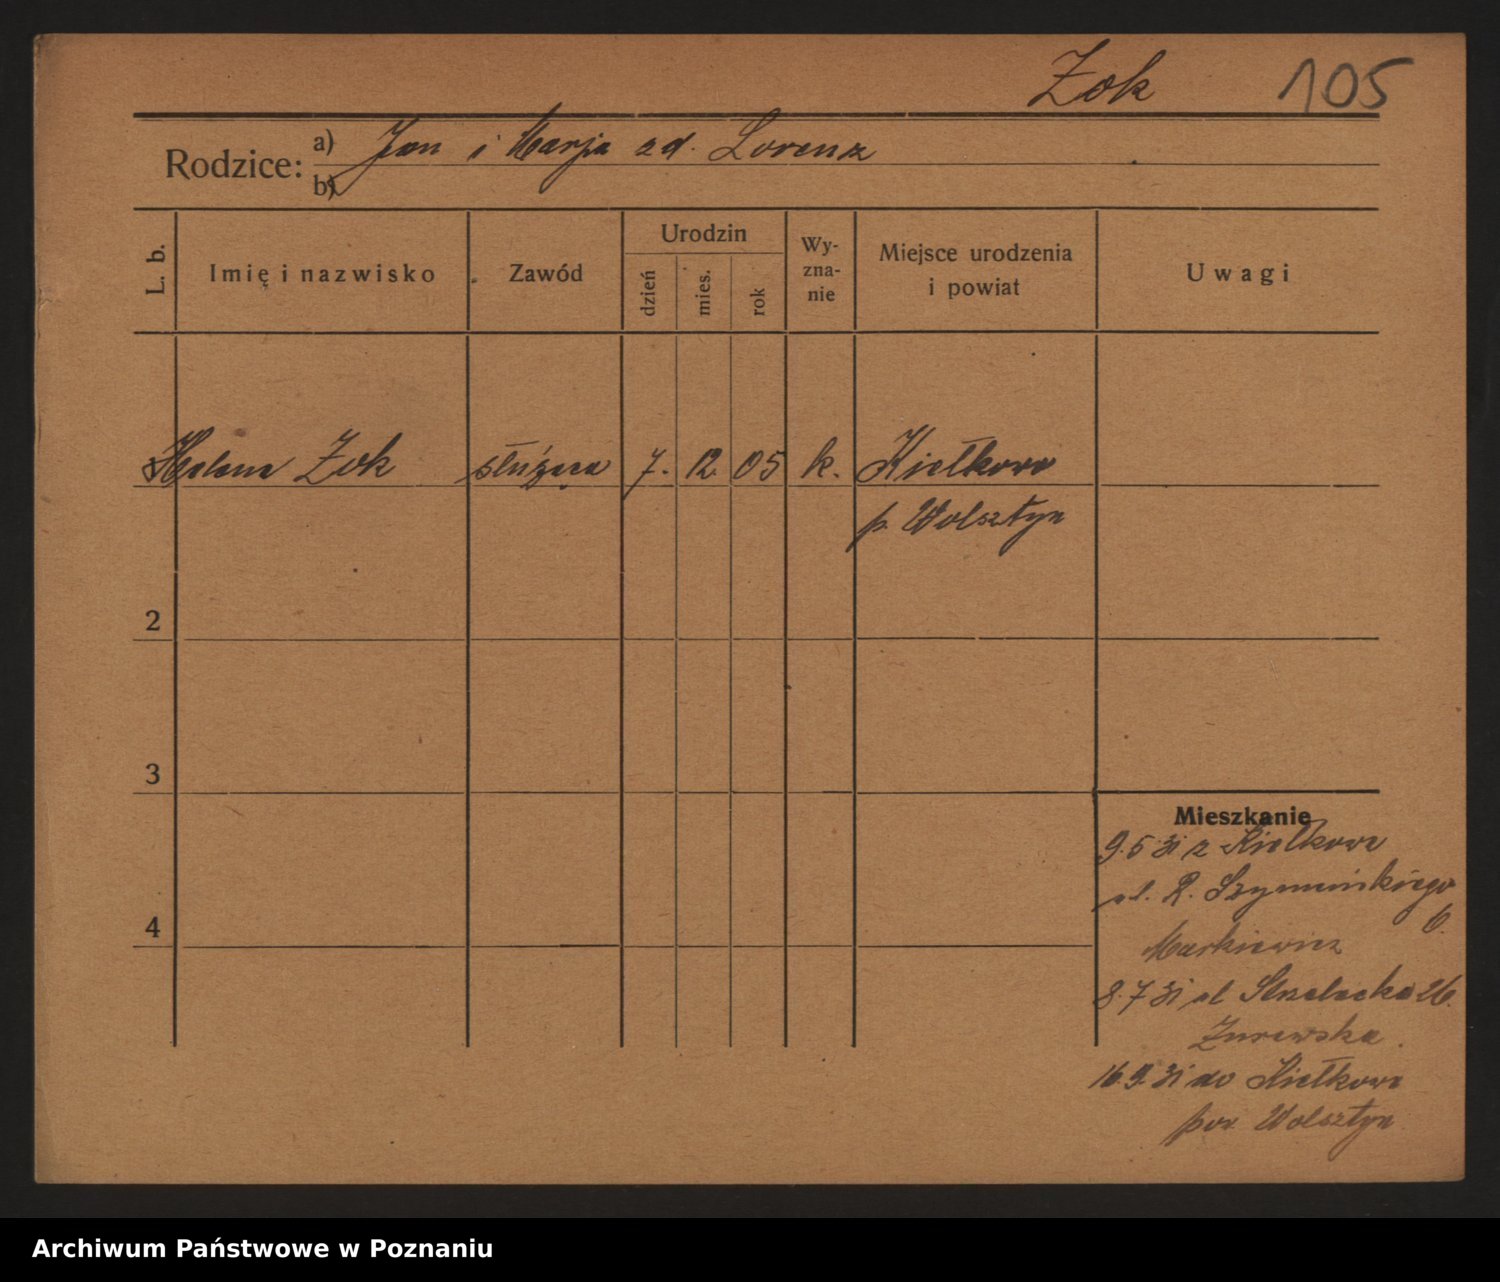 Zok 105
Rodzice: a) Jan i Marja zd. Lorenz
b)
L. b. Imię i nazwisko Zawód Urodzin dzień mies. rok Wy-zna-nie Miejsce urodzenia i powiat Uwagi
Helena Zok służąca 7. 12. 05 k. Kiełkowo
p. Wolsztyn
2
3
4
Mieszkanie
9.5 31 z Kiełkowo
ul. R. Szymańskiego
6.
Markiewicz
8.7 31 ul Strzelecka 26.
Żurawska
16.9. 31 do Kiełkowo
pow. Wolsztyn
Archiwum Państwowe w Poznaniu